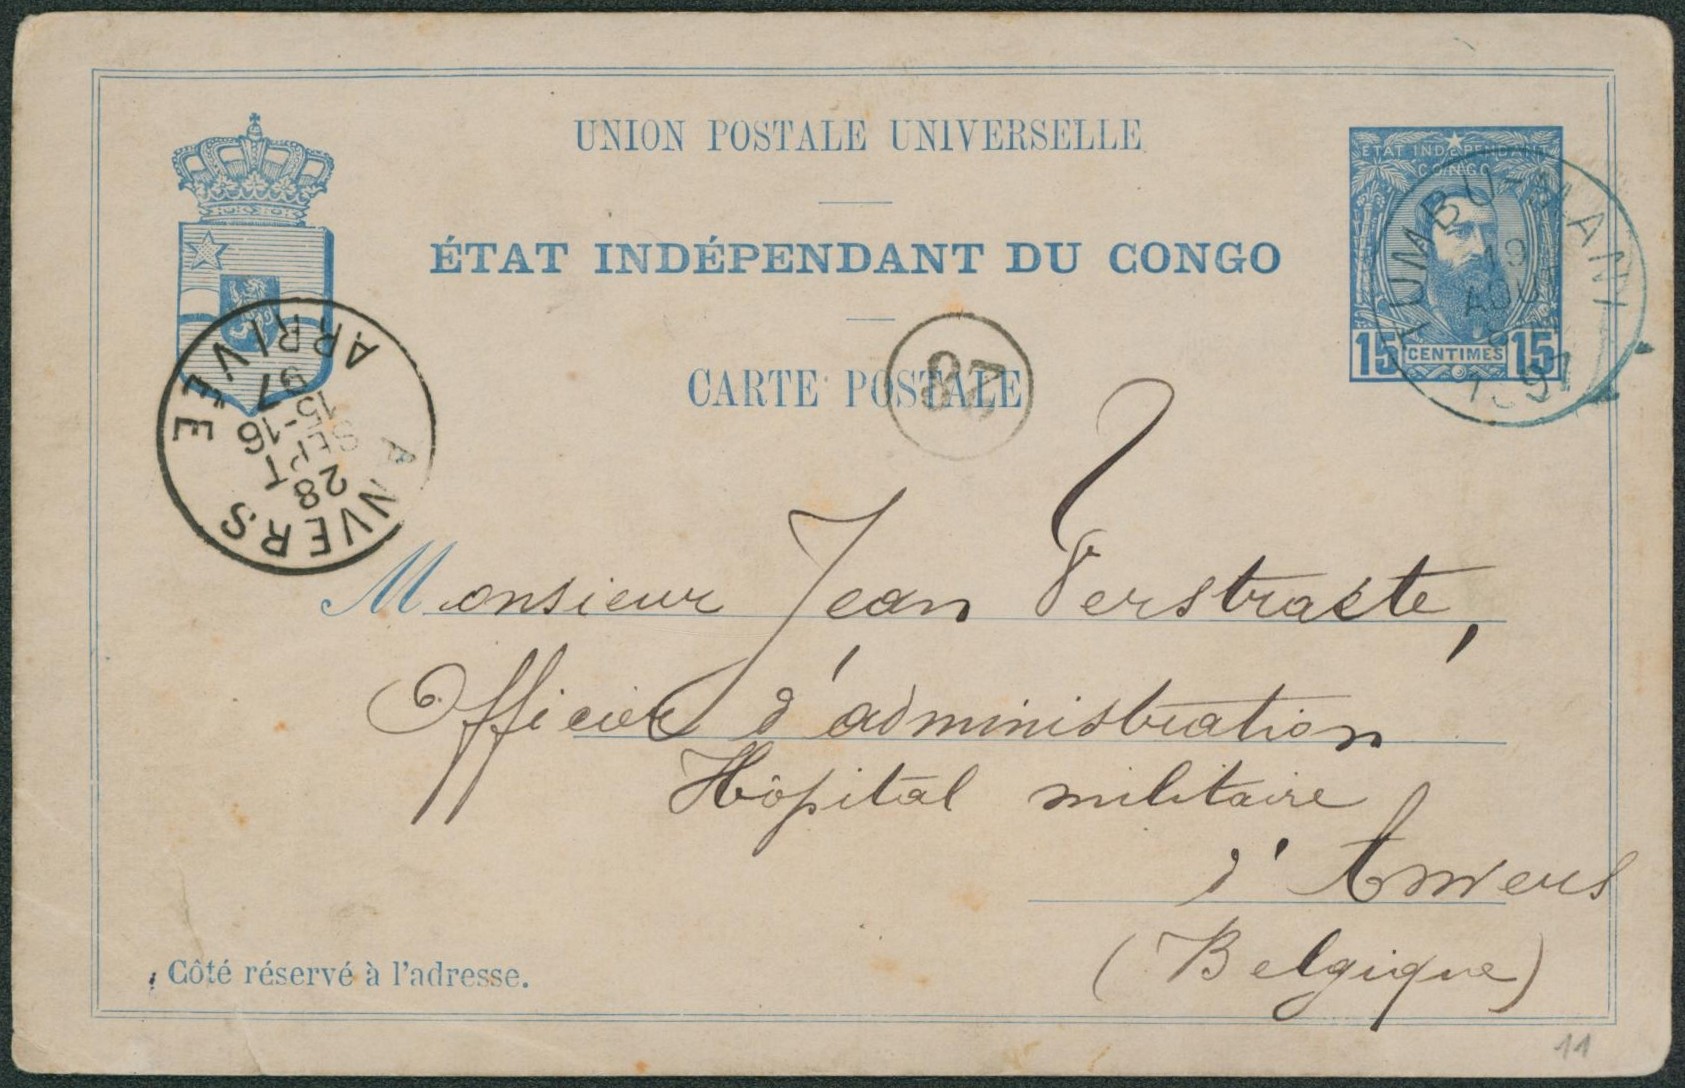 UNION POSTALE UNIVERSELLE
ÉTAT INDÉPENDANT DU CONGO
CARTE POSTALE
ÉTAT INDÉPENDANT
DU CONGO
15 CENTIMES 15
TUMBU-MANI
13
AOUT
1897
ANVERS
28
SEPT
15-16
97
ARRIVÉE
28
Monsieur Jean Verstraete,
Officier d'administration
Hôpital militaire
d'Anvers
(Belgique)
Côté réservé à l'adresse.
11